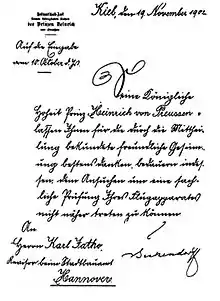 Kiel, den 19. November 1902.
Hofmarschall-Amt
Seiner Königlichen Hoheit
des Prinzen Heinrich
von Preussen
Auf die Eingabe
vom 18. Oktober d. Js.
Seine Königliche
Hoheit Prinz Heinrich von Preussen
lassen Ihnen für die durch die Mittheilung
bekundete freundliche Gesinnung
bestens danken, bedauern indessen,
dem Ansuchen um eine fachliche
Prüfung Ihres Flugapparates
nicht näher treten zu können
An
Herrn Karl Jatho,
beim Stadtbauamt
Hannover